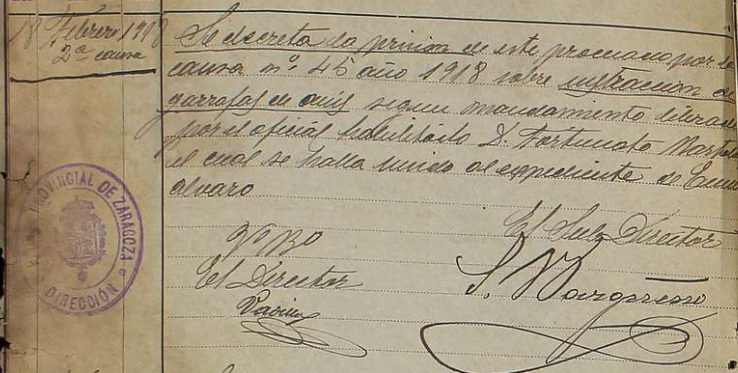 18 Febrero 1918
2ª causa
Se decreta la prision de este procesado por la
causa nº 45 año 1918 sobre
garrafas de anis segun mandamiento librado
por el oficial habilitado D. Fortunato
el cual se halla unido al expediente de
Alvaro
Vº Bº
El Director
El Sub Director
PROVINCIAL DE ZARAGOZA
DIRECCIÓN